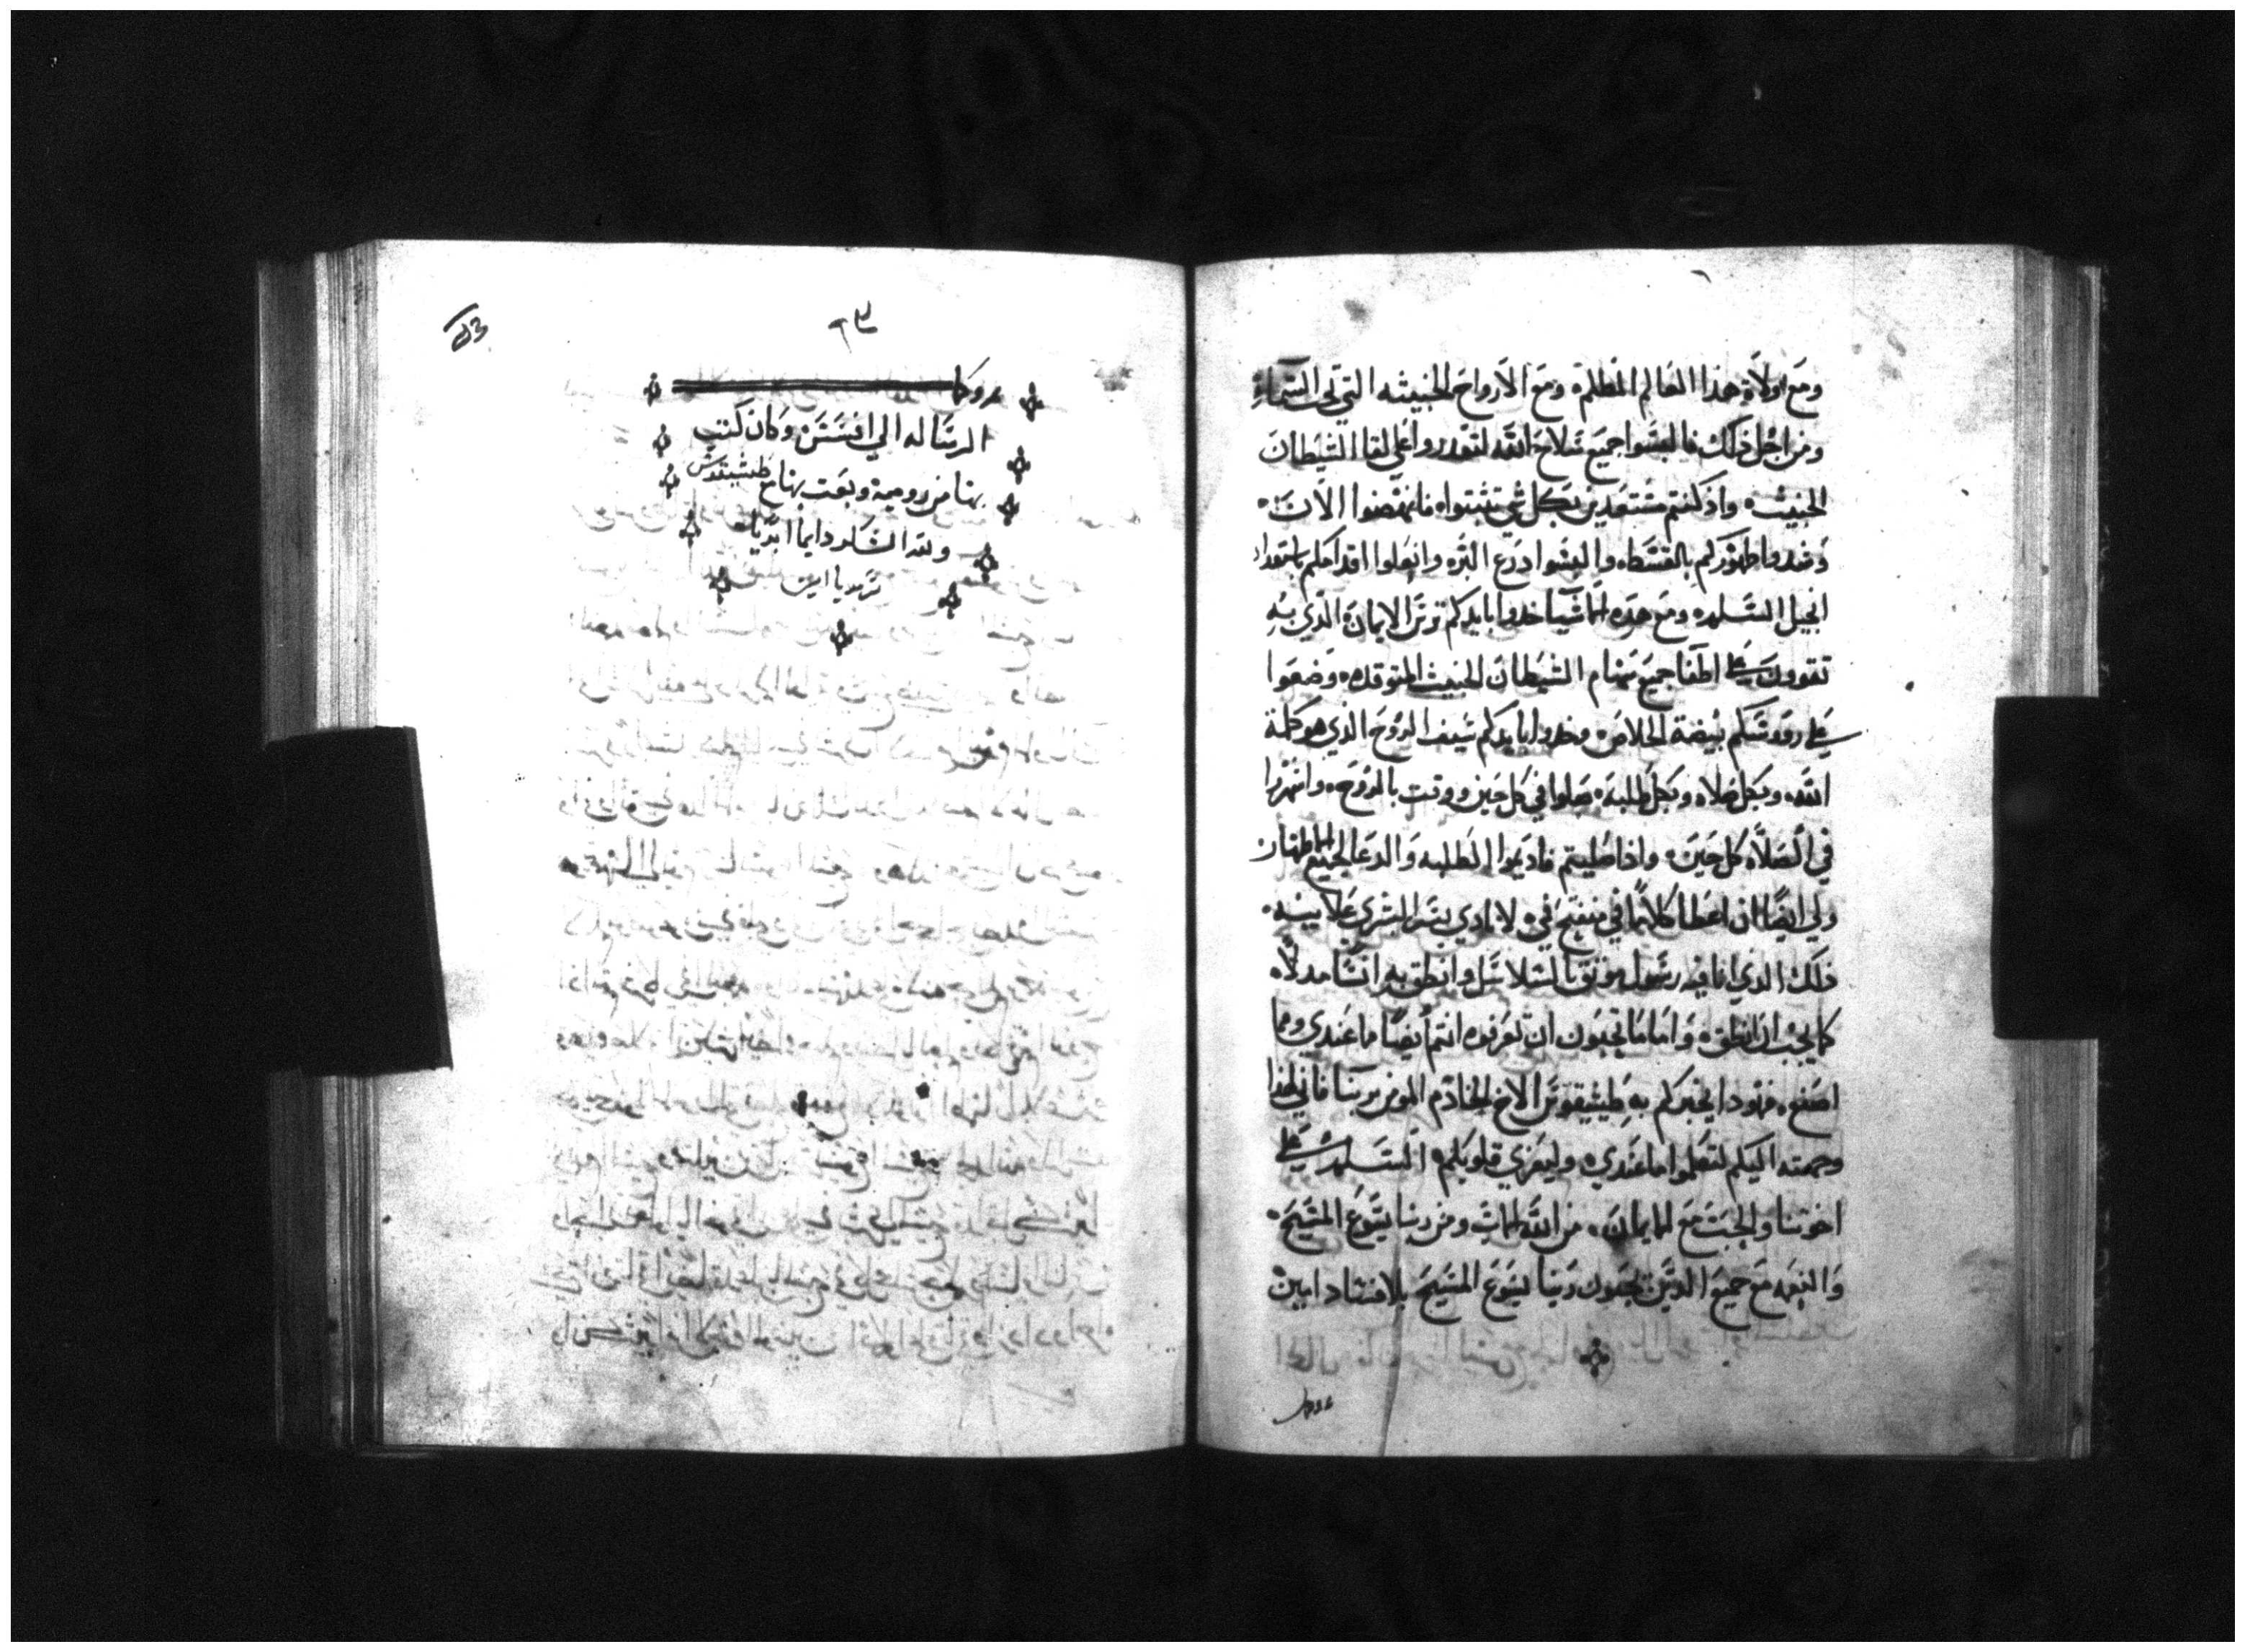 ومع ولاة هذا العالم المظلمة ومع الارواح الخبيثه التي تحت السماء
ومن اجل ذلك فالبسوا جميع سلاح الله لتقدروا علي لقا الشيطان
الخبيث واذ كنتم مستعدين بكل شي تثبتواه فانهضوا الان
وشدوا ظهوركم بالقسطاه والبسوا درع البره وانعلوا اقدامكم باستعداد
انجيل السلمه ومع هده الاشيا خدوا بايدكم ترس الايمان الذي به
تقوون علي اطفا جميع سهام الشيطان الخبيث المتوقده وضعوا
علي رووسكم بيضة الخلاص وخدوا بايدكم سيف الروح الذي هو كلمة
الله وبكل صلاه وبكل طلبه صلوا في كل حين ووقت بالروح واسهروا
في الصلاه كل حين واذا صليتم فاديموا الطلبه والدعا لجميع الاطهار
ولي ايضا ان اعطا كلاما في منفتح في لانادي بسر البشري علانيه
ذلك الذي انا فيه رسول موثق بالسلاسل وانطق به انشا مدلاه
كما يجب ان انطق واما ما تحبون ان تعرفوه انتم ايضا ما عندي وما
اصنع فهودا يخبركم به طيشيقوس الاخ الخادم المومن بربنا فاني لهذا
وجهته اليكم لتعلموا ما عندي وليعزي قلوبكم السلم علي
اخوتنا والحب مع الايمان من الله الاب ومن ربنا يسوع المسيح
والنعمه مع جميع الدين يحبون ربنا يسوع المسيح بلا فساد امين
الرساله الي افسس وكان كتب
بها من رومية وبعت بها مع طيشيقوس
ولله الشكر دايما ابديا
سرمديا امين